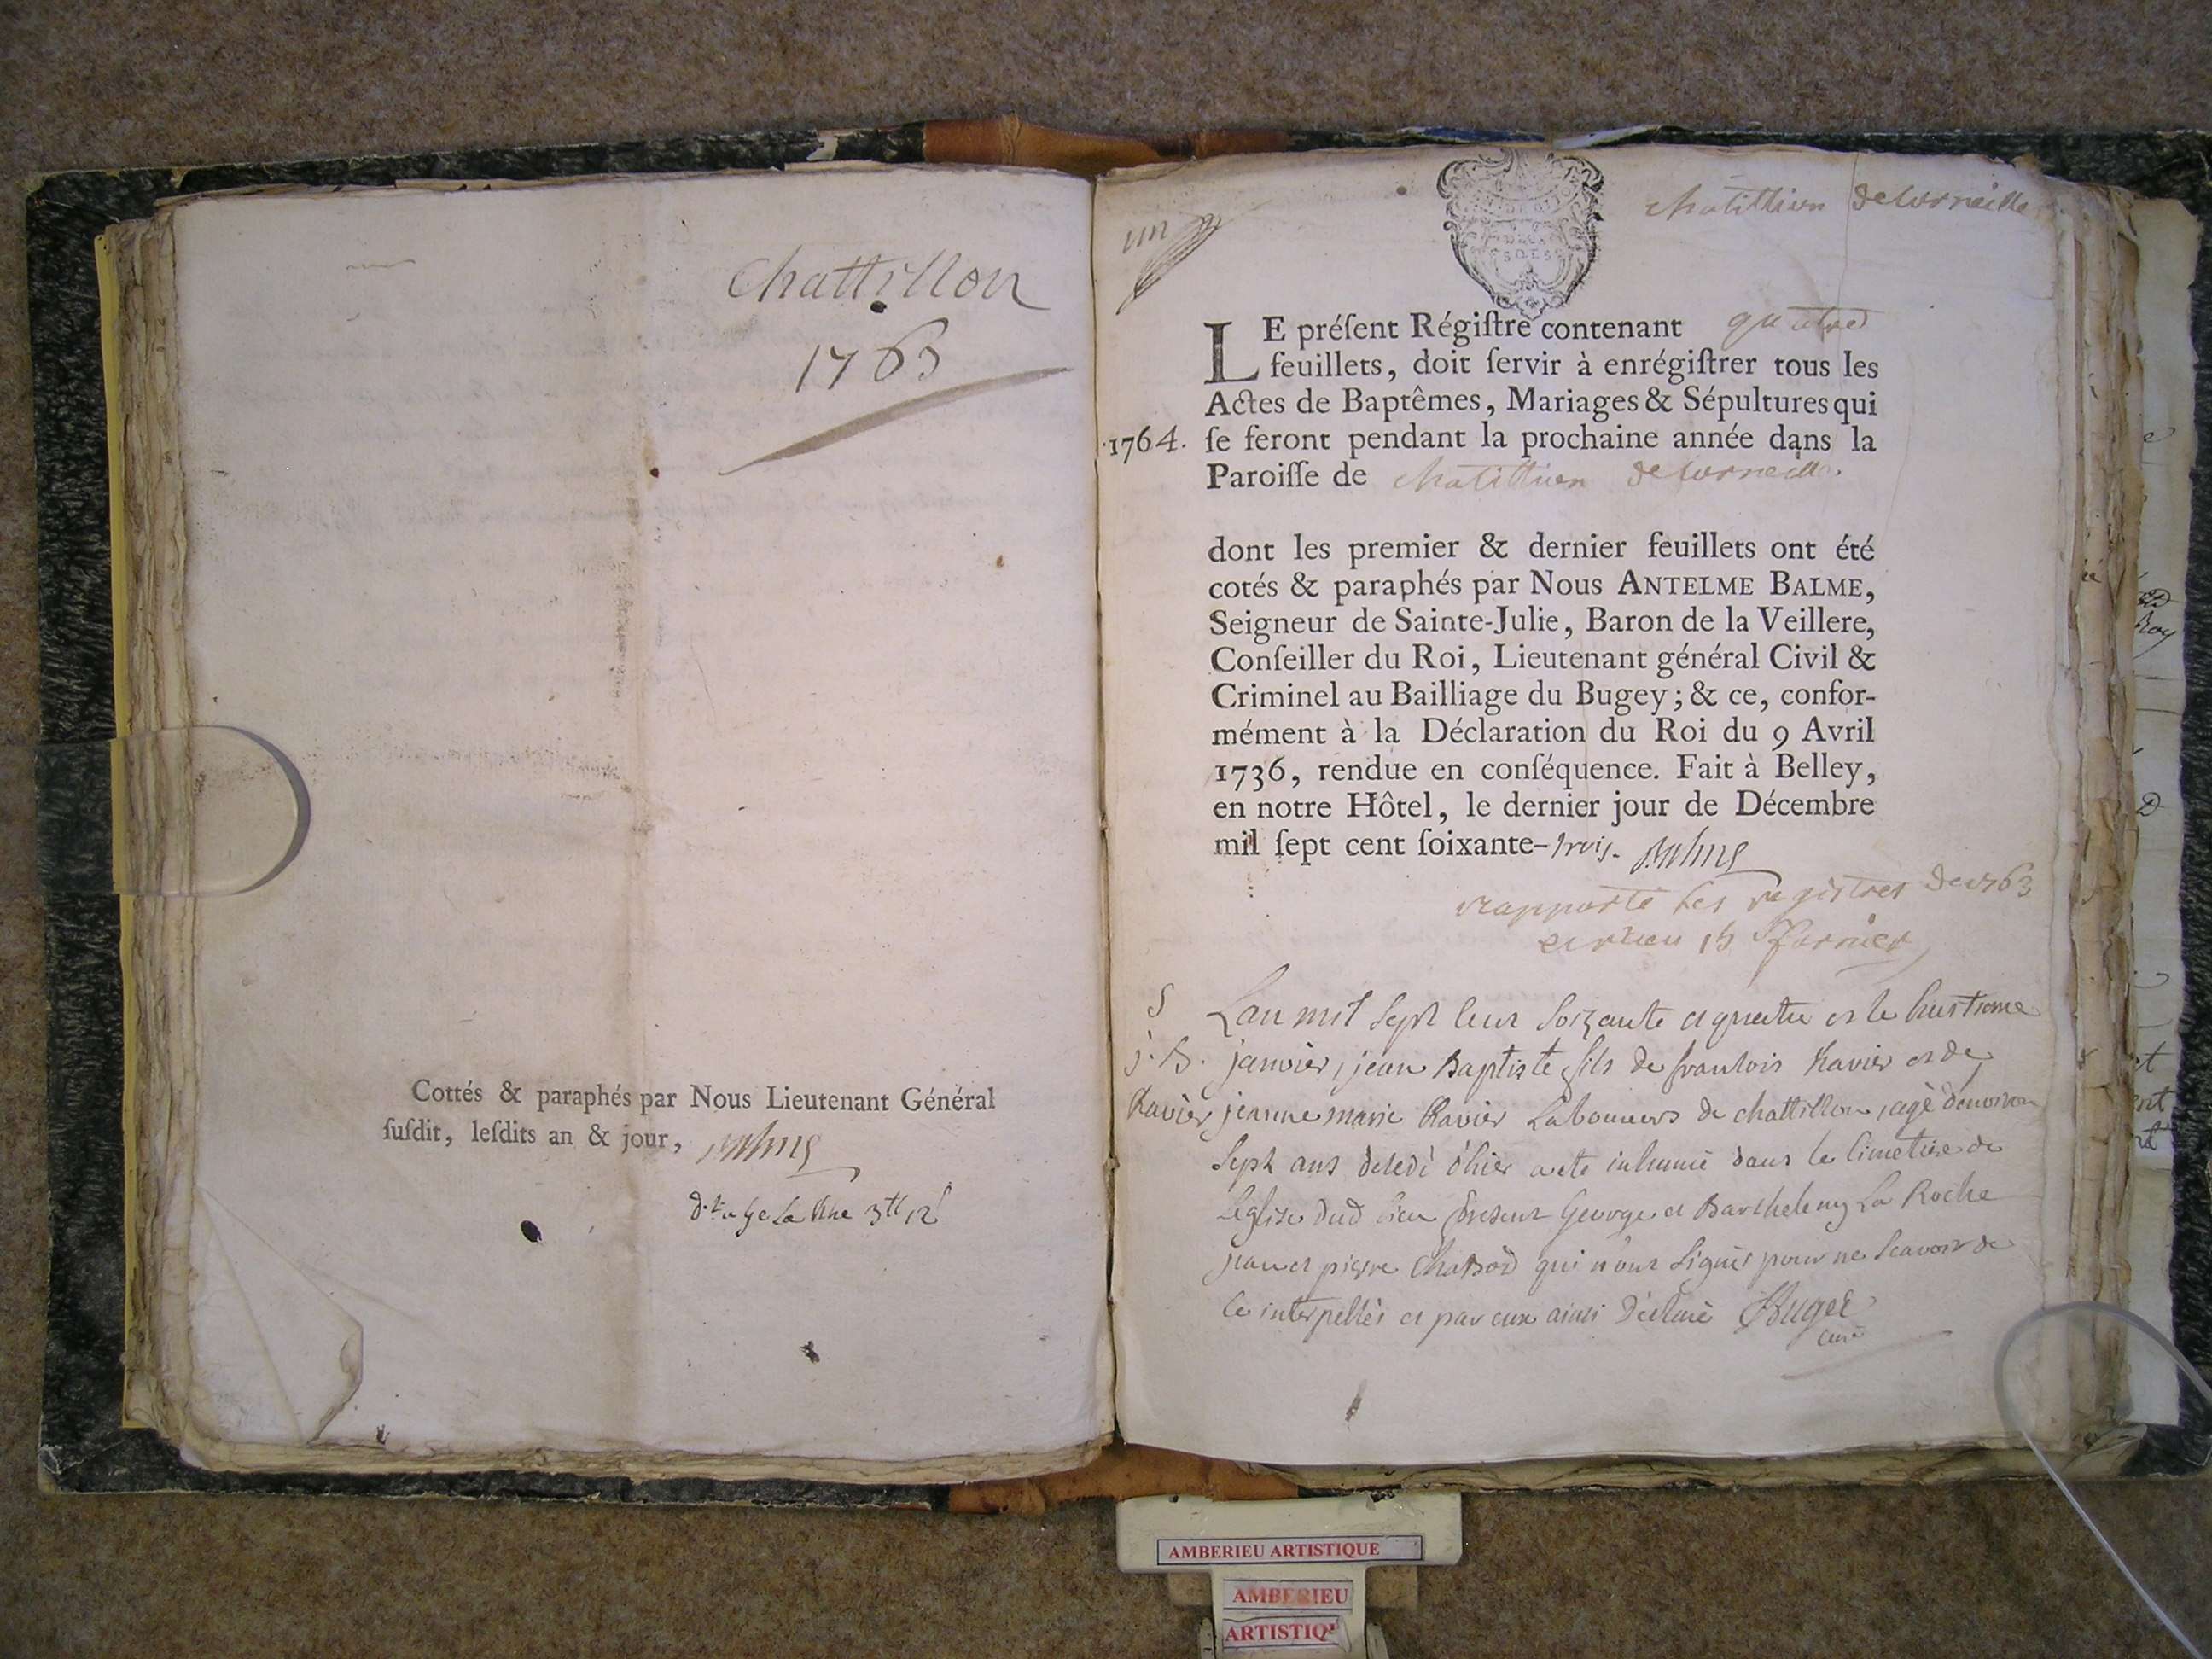 Chattillon
1763
Cottés & paraphés par Nous Lieutenant Général
ſuſdit, leſdits an & jour, Balme
3tt 12ſ
un
chatillion de Corneille
LE préſent Régiſtre contenant quatre
feuillets, doit ſervir à enrégiſtrer tous les
Actes de Baptêmes, Mariages & Sépultures qui
1764. ſe feront pendant la prochaine année dans la
Paroiſſe de chatillion de Corneille
dont les premier & dernier feuillets ont été
cotés & paraphés par Nous ANTELME BALME,
Seigneur de Sainte-Julie, Baron de la Veillere,
Conſeiller du Roi, Lieutenant général Civil &
Criminel au Bailliage du Bugey; & ce, confor-
mément à la Déclaration du Roi du 9 Avril
1736, rendue en conſéquence. Fait à Belley,
en notre Hôtel, le dernier jour de Décembre
mil ſept cent ſoixante-trois. Balme
rapporté les registres de 1763
S Lan mil Sept Cent Soixante et quatre et le huitieme
j. B. janvier, jean Baptiste fils de francois Ravier et de
Ravier jeanne marie Ravier Laboureurs de chattillon, agé d'environ
Sept ans decedé d'hier a eté inhumé dans le Cimetiere de
L'eglise dud Lieu present George et Barthelemy La Roche
jean et pierre Chabod qui n'ont Signés pour ne Scavoir de
Ce interpellés et par eux ainsi Declaré Buget
Curé
AMBERIEU ARTISTIQUE
AMBERIEU
ARTISTIQ